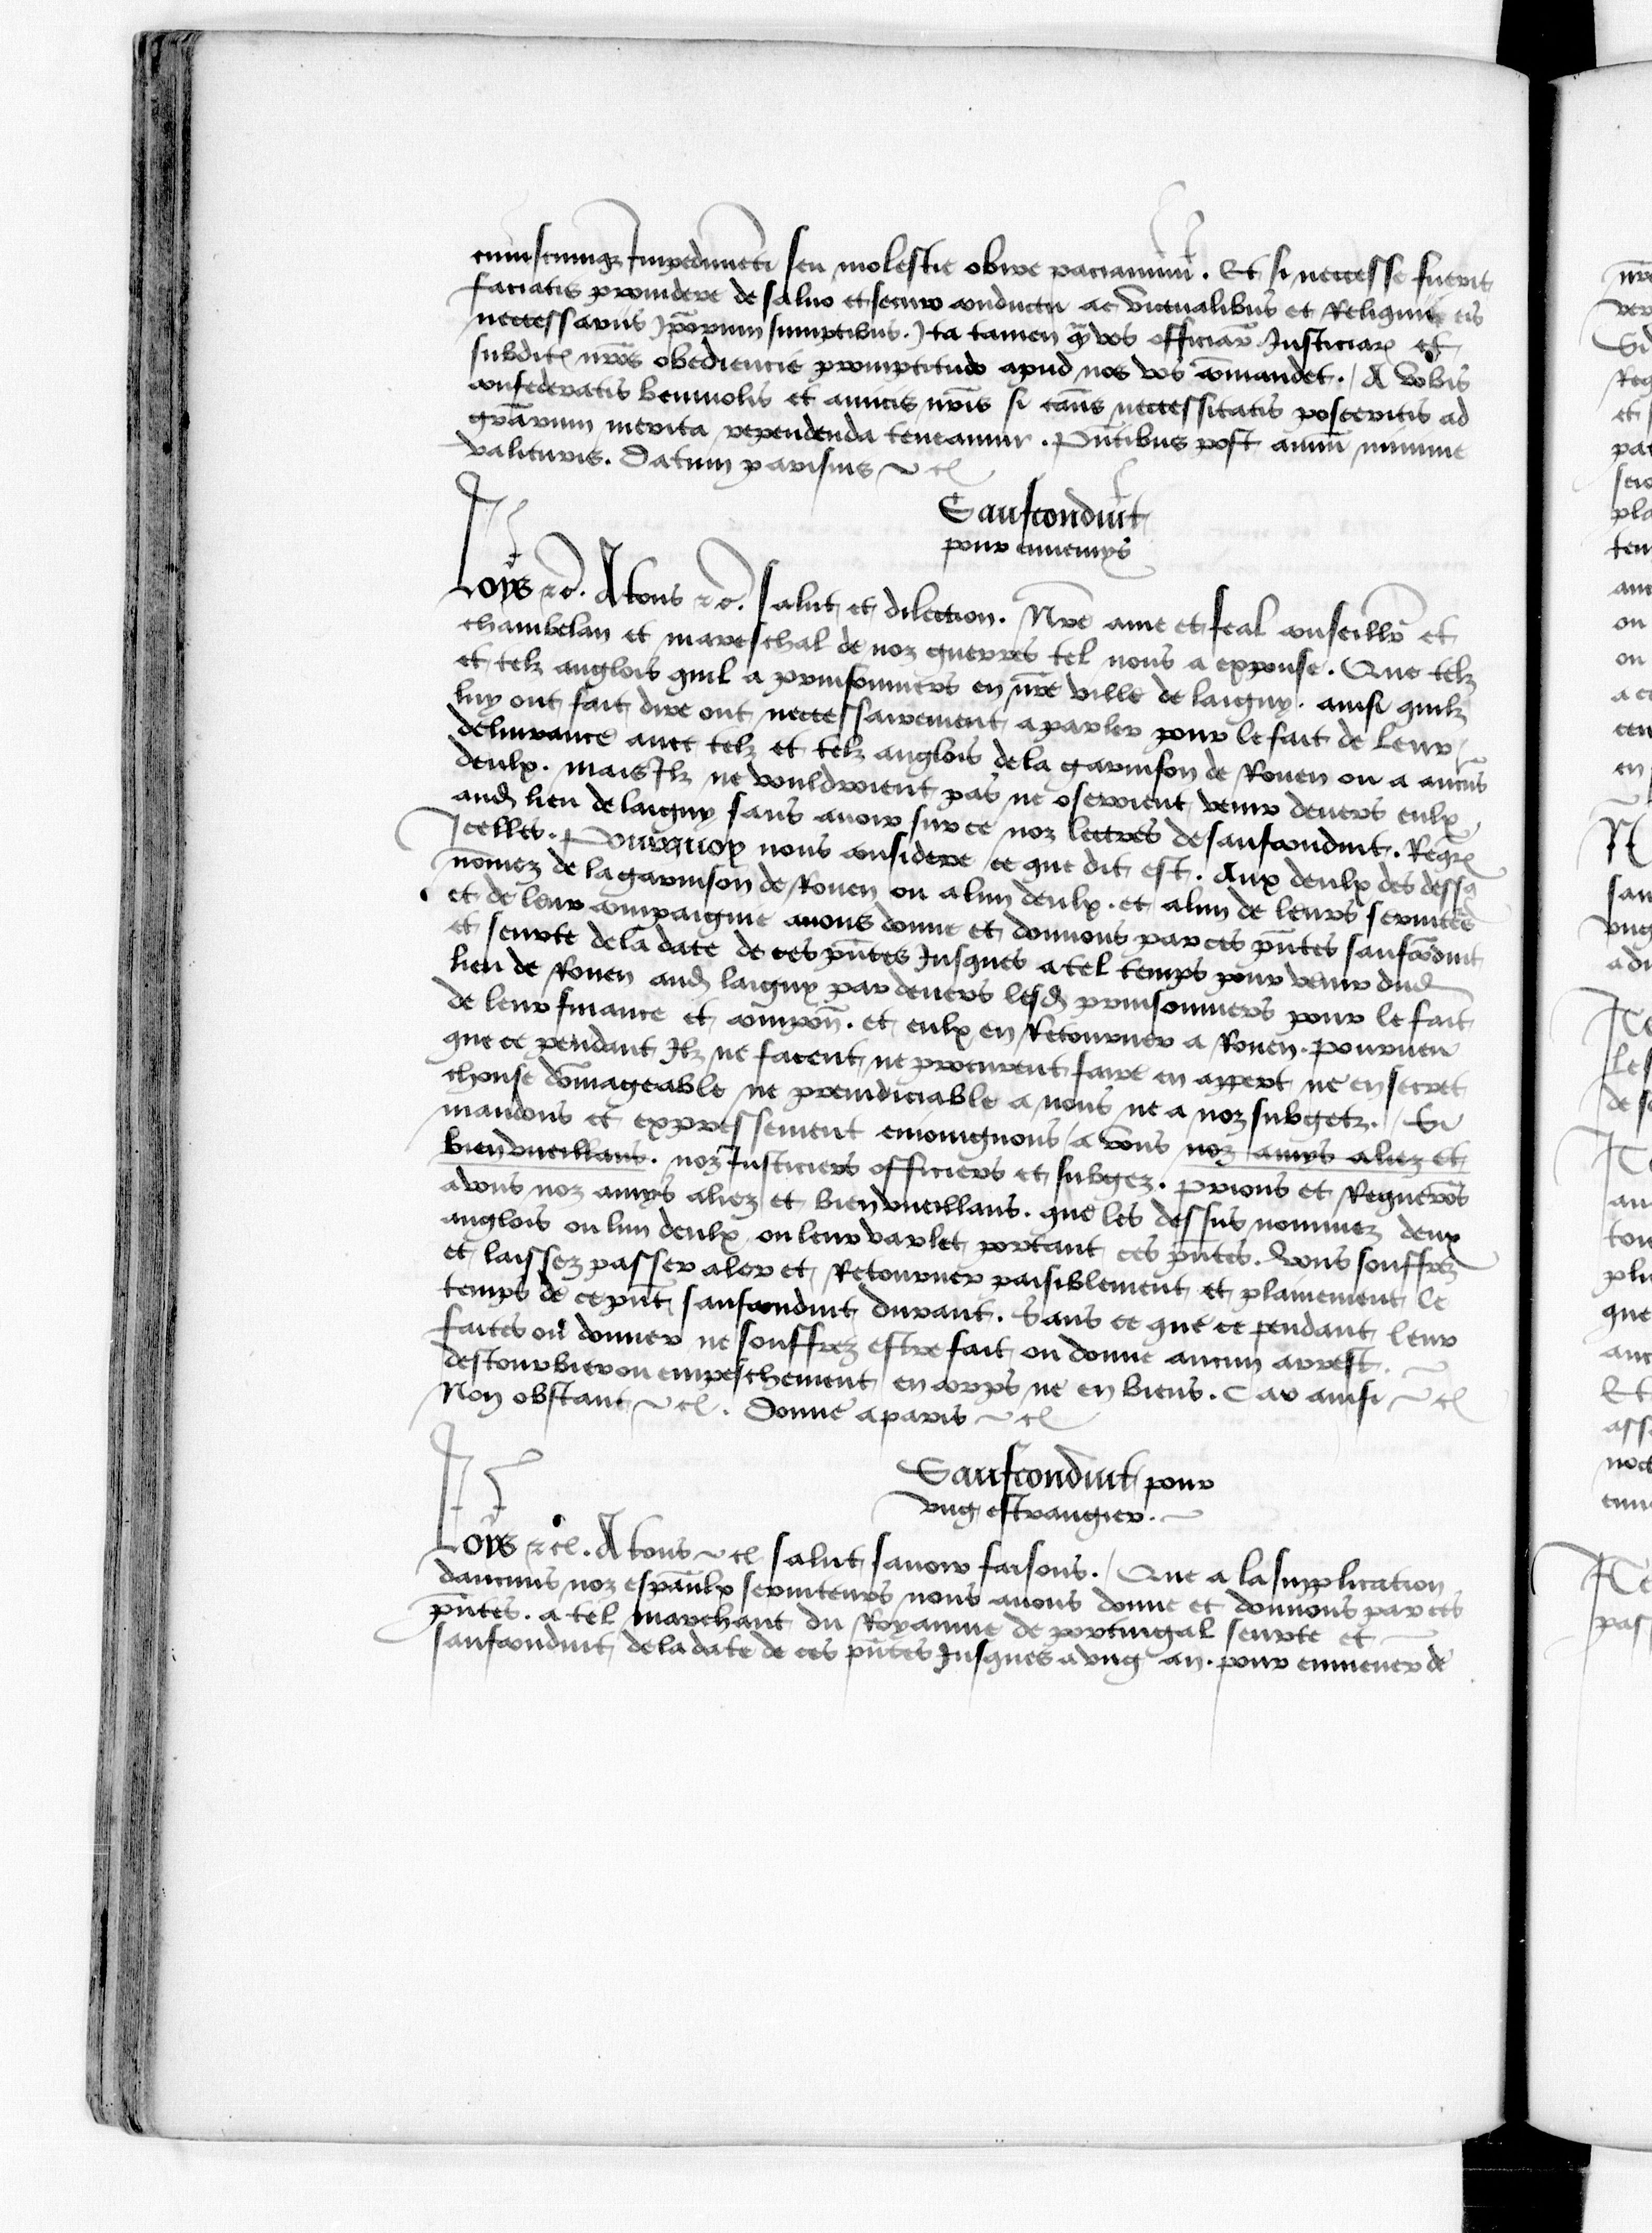 cuiuscumq Impedimeti seu molestie obice paciamini. Et si neccesse fuerit
faciatis prouidere de saluo et securo conductu ac victualibus et Reliquis eis
neccessariis Iporum sumptibus. Ita tamen q vos officiar Justiciar et
subdit nros obediencie promptitudo apud nos vos comandet. A vobis
confederatis beniuolis et amicis nris si casus neccessitatis posceritis ad
grarum merita rependenda teneamur. Pntibus post annu minime
valituris. Datum parisius etc
Saufconduit
pour ennemys
Loys etc. A tous etc. salut et dilection. Nre ame et feal conseillr et
chambelan et mareschal de noz guerres tel nous a expouse. Que telz
et telz anglois quil a prinsonniers en nre ville de laigny. ainsi quilz
luy ont fait dire ont neccessairement a parler pour le fait de leur
deliurance auec telz et telz anglois de la garnison de Rouen ou a aucus
deulx. mais Ilz ne vouldroient pas ne oseroient venir deuers eulx
aud lieu de laigny sans auoir sur ce noz lectres de saufconduit. Requer
Icelles. Pourquoy nous considere ce que dit est. Aux deulx des dessq
nomez de la garnison de Rouen ou a lun deulx. et a lun de leurs seruites
et de leur compaignie auons donne et donnons par ces pntes saufcoduit
et seurte de la date de ces pntes Jusques a tel temps pour venir dud
lieu de Rouen aud laigny par deuers lesd prinsonniers pour le fait
de leur finance et compon. et eulx en Retourner a Rouen. pourueu
que ce pendant Ilz ne facent ne procurent faire en appert ne en secret
chouse domageable ne preiudiciable a nous ne a noz subgetz. Si
mandons et expressement enioignons a vous noz amys aliez et
bienvueillans. noz Justiciers officiers et subgez. prions et Requeros
a vous noz amys aliez et bienvueillans. que les dessus nommez deux
anglois ou lun deulx ou leur varlet portant ces pntes. vous souffrez
et laissez passer aler et Retourner paisiblement et plainement le
temps de ce pnt saufconduit durant. Sans ce que ce pendant leur
faites ou donner ne souffrez estre fait ou donne aucun arrest.
destourbier ou empeschement en corps ne en biens. Car ainsi etc
Non obstant etc. Donne a paris etc
Saufconduit pour
vng estrangier.
Loys etc. A tous etc salut sauoir faisons. Que a la supplication
daucuns noz espaulx seruiteurs nous auons donne et donnons par ces
pntes. a tel marchant du Royaume de portingal seurte et
saufconduit de la date de ces pntes Jusques a vng an. pour enmener de